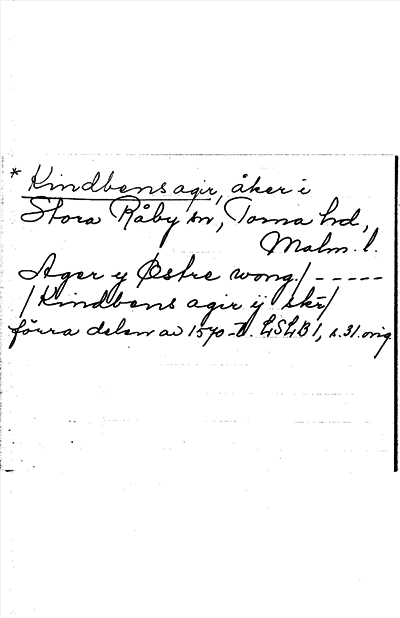 * Kindbens agir, åker i
Stora Råby sn, Torna hd,
Malm. l.
Ager y Østre wong / - - - - -
/ Kindbens agir ÿ skr /
förra delen av 1570-t. LSLB 1, s. 31. orig.